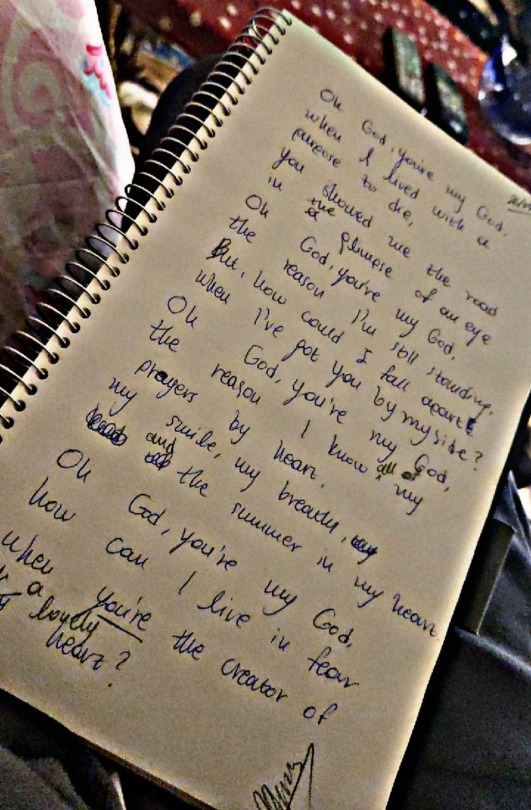 Oh God, you're my God,
when I lived with a
purpose to die,
you showed me the road
in a glimpse of an eye
Oh God, you're my God,
the reason I'm still standing,
But, how could I fall apart
when I've got you by my side?
Oh God, you're my God,
the reason I know all of my
prayers by heart,
my smile, my breath,
and the summer in my heart.
Oh God, you're my God,
how can I live in fear
when you're the creator of
a lovely
heart?